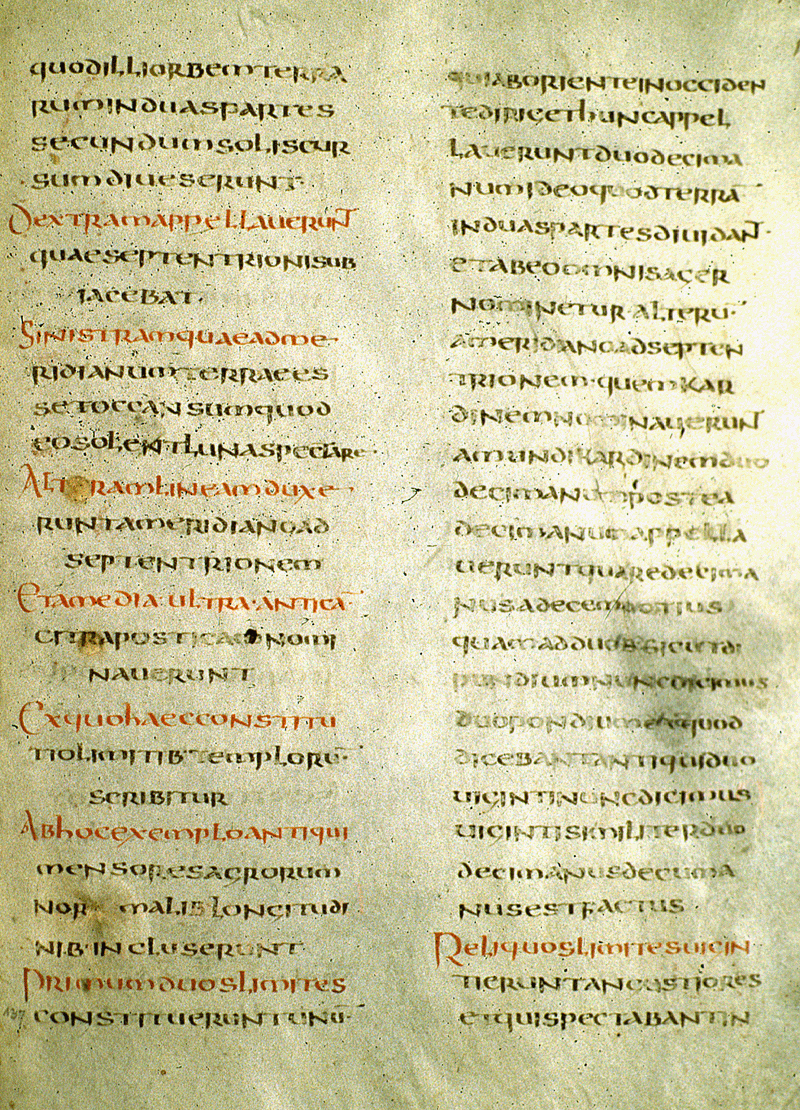 quodilliorbemterra
ruminduaspartes
secundumsoliscur
sumdiueserunt·
dextramappellauerunt
quaeseptentrionisub
iacebat·
Sinistramquaeadme
ridianumterraees
setoccansumquod
eosoletlunaspectare·
Alteramlineamduxe
runtameridianoad
septentrionem
Etamediaultra·antica·
citrapostica nomi
nauerunt
Exquohaecconstitu
tiolimitib·temploru·
scribitur
Abhocexemploantiqui
mensoresacrorum
nor malib longitudi
nib·incluserunt
Primumduoslimites
constitueruntunu·
quiaborienteinocciden
tedirigethuncappel
laueruntduodecima
numideoquodterra
induaspartesdiuidat·
etabeoomnisager
nominetur alteru·
ameridianoadsepten
trionem·quemkar
dinemnominauerunt
amundikardinemduo
decimanumpostea
decimanumappella
ueruntquaredecima
nusadecempotius
quamadduobsicutdi
pundiumnuncdicimus
dubpondiumetquod
dicebantantiquiduo
uigintinuncdicimus
uigintisimiliterduo
decimanusdecuma
nusestfactus·
Reliquoslimitesuicin
tieruntangustiores
etquispectabantin